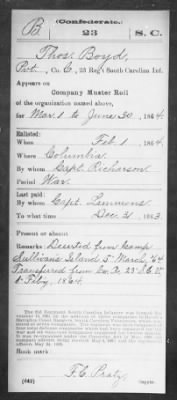 (Confederate.)
B 23 S. C.
Thos. Boyd,
Pvt., Co. C, 23 Reg't South Carolina Inf.
Appears on
Company Muster Roll
of the organization named above,
for Mar. 1 to June 30, 1864
Enlisted:
When Feb 1, 1864
Where Columbia
By whom Capt. Richarson
Period War.
Last paid:
By whom Capt. Lemmons
To what time Dec. 31, 1863
Present or absent
Remarks: Deserted from camp
Sullivans Island 5" March, '64
Transferred from Co. 23" S.C.V.
Feby. 1864.
Book mark:
(642) Copyist.